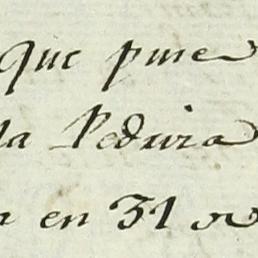 que puse
la Pedvira
en 31